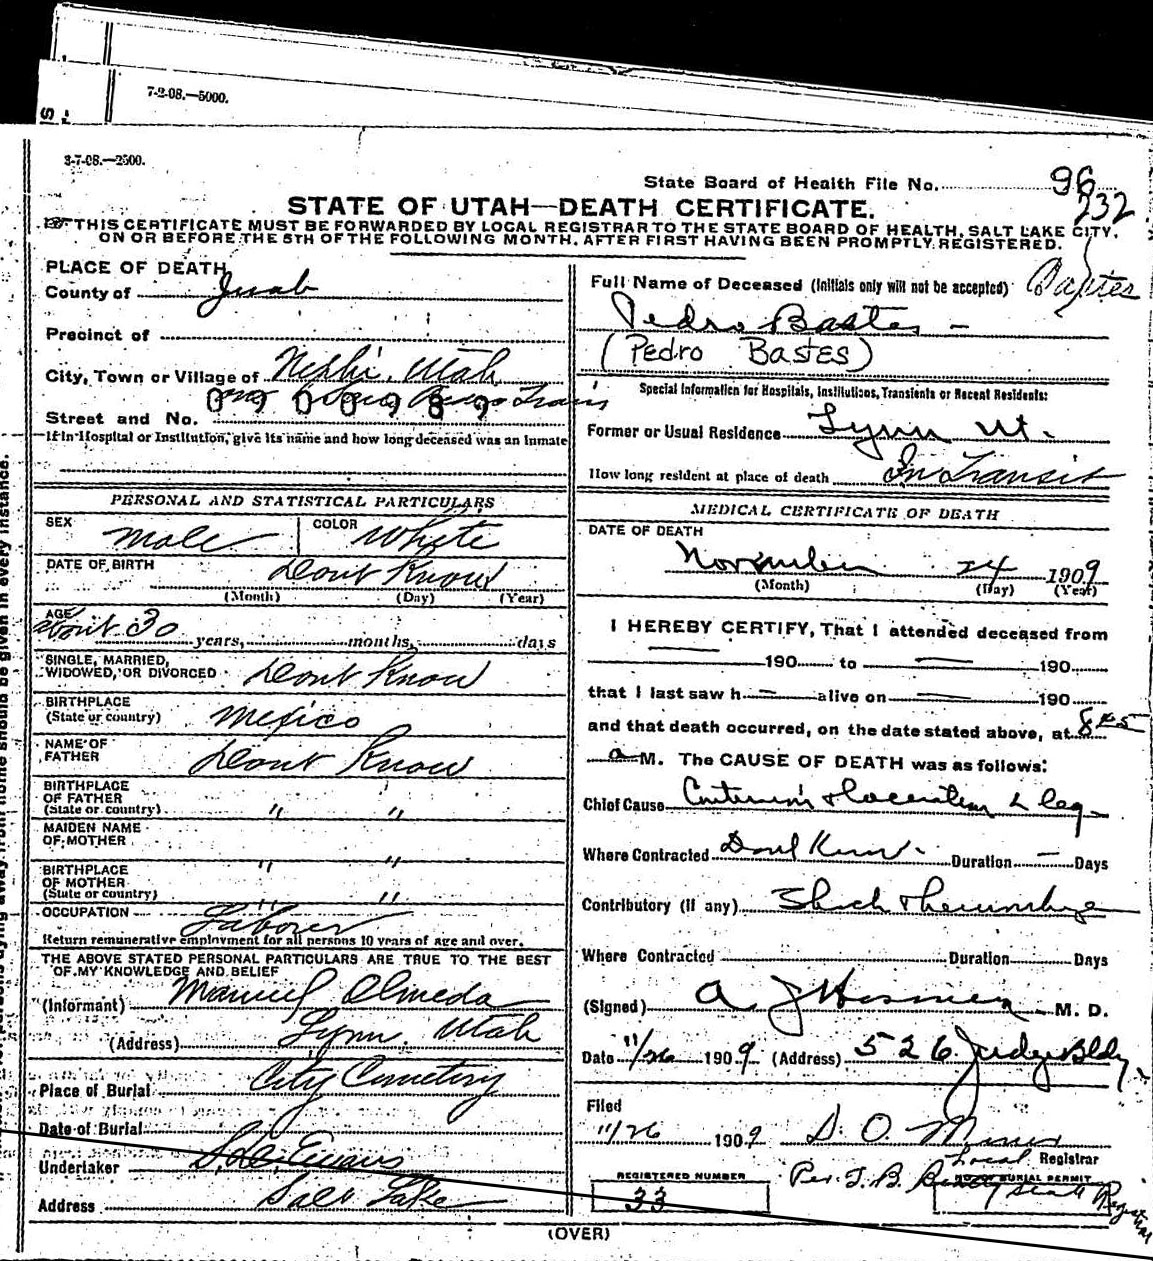 7-2-08.—5000.
3-7-08.—2500.
State Board of Health File No. 96
232
STATE OF UTAH—DEATH CERTIFICATE.
THIS CERTIFICATE MUST BE FORWARDED BY LOCAL REGISTRAR TO THE STATE BOARD OF HEALTH, SALT LAKE CITY,
ON OR BEFORE THE 5TH OF THE FOLLOWING MONTH, AFTER FIRST HAVING BEEN PROMPTLY REGISTERED.
PLACE OF DEATH
County of Juab
Precinct of
City, Town or Village of Nephi, Utah
Train
0900989
Street and No.
If in Hospital or Institution, give its name and how long deceased was an Inmate
PERSONAL AND STATISTICAL PARTICULARS
SEX Male
COLOR White
DATE OF BIRTH Dont Know
(Month) (Day) (Year)
AGE about 30 years, months, days
SINGLE, MARRIED,
WIDOWED, OR DIVORCED Dont Know
BIRTHPLACE
(State or country) Mexico
NAME OF
FATHER Dont Know
BIRTHPLACE
OF FATHER
(State or country) " "
MAIDEN NAME
OF MOTHER " "
BIRTHPLACE
OF MOTHER
(State or country) " "
OCCUPATION Laborer
Return remunerative employment for all persons 10 years of age and over.
THE ABOVE STATED PERSONAL PARTICULARS ARE TRUE TO THE BEST
OF MY KNOWLEDGE AND BELIEF
(Informant) Manuel Olmeda
(Address) Lynn, Utah
Place of Burial City Cemetery
Date of Burial
Undertaker S. D. Evans
Address Salt Lake
Full Name of Deceased (Initials only will not be accepted)
Pedro Bastes
(PEDRO BASTES)
Special Information for Hospitals, Institutions, Transients or Recent Residents:
Former or Usual Residence Lynn Ut.
How long resident at place of death In Transit
MEDICAL CERTIFICATE OF DEATH
DATE OF DEATH
November 24 1909
(Month) (Day) (Year)
I HEREBY CERTIFY, That I attended deceased from
— 190 to — 190
that I last saw h — alive on — 190
and that death occurred, on the date stated above, at 8 45
a M. The CAUSE OF DEATH was as follows:
Chief Cause leg
Where Contracted Dont Know. Duration — Days
Contributory (if any) Shock & hemorrhage
Where Contracted Duration Days
(Signed) A J Hosmer M. D.
Date 11/26 1909 (Address) 526 Judge Bldg.
Filed
11/26 1909
Local Registrar
Per. T. B. Beatty State Registrar
REGISTERED NUMBER
33
NO. OF BURIAL PERMIT
(OVER)